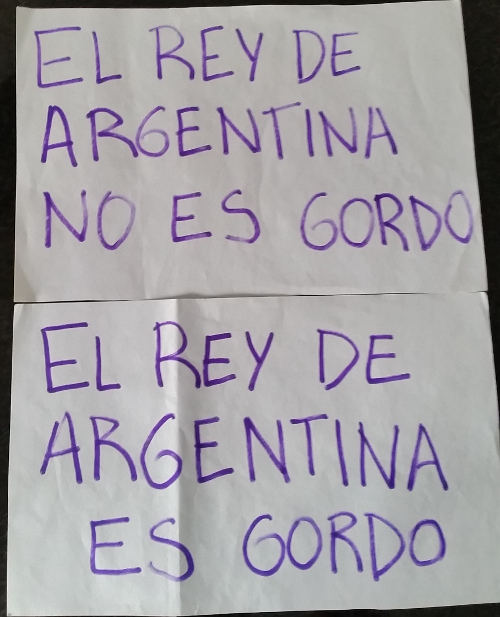 EL REY DE
ARGENTINA
NO ES GORDO
EL REY DE
ARGENTINA
ES GORDO